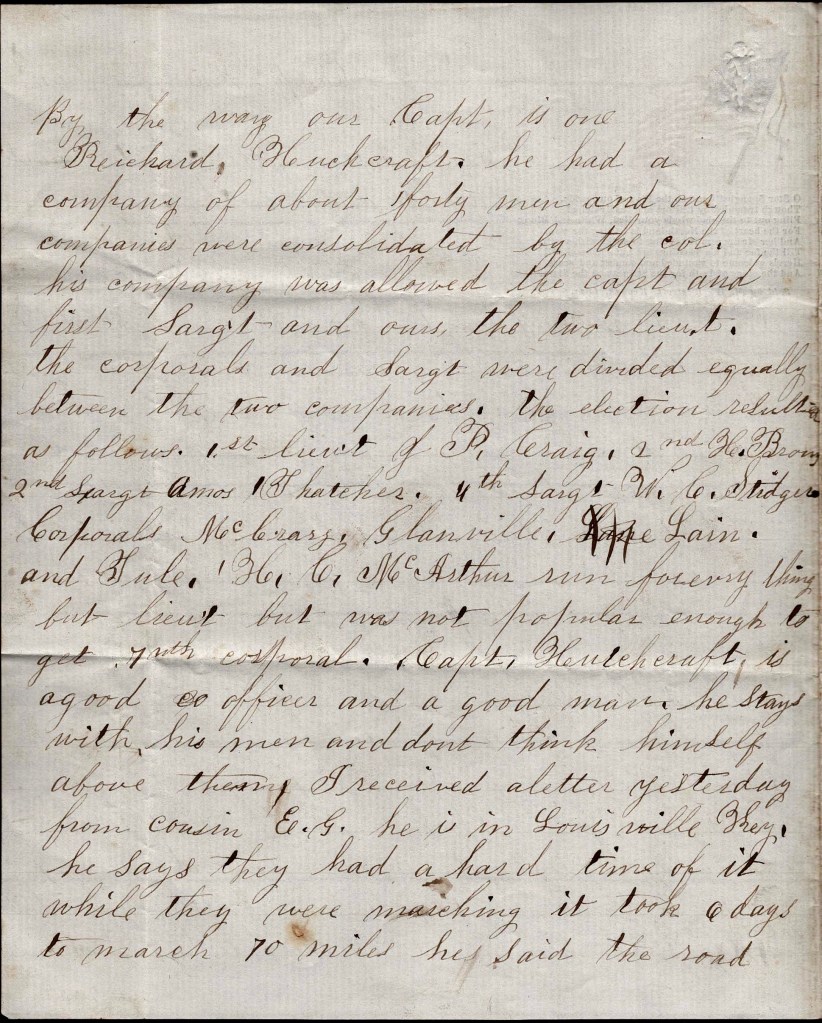 By the way our Capt, is one
Reickard, Huchcraft. he had a
company of about forty men and our
companies were consolidated by the col.
his company was allowed the capt and
first Sargt and ours, the two lieut.
the corporals and Sargt were divided equally
between the two companies. the election resulted
as follows. 1.st lieut J P, Craig, 2nd H. Brown
2nd Sargt Amos Thatcher. 4th Sargt W. C. Stidger
Corporals McCrary, Glanville, Lain.
and Tule, H, C, McArthur run for evry thing
but lieut but was not popular enough to
get 7nth corporal. Capt, Hutchcraft, is
a good officer and a good man. he stays
with his men and dont think himself
above them, I received a letter yesterday
from cousin E. G. he is in Louisville Key,
he says they had a hard time of it
while they were marching it took 6 days
to march 70 miles he said the road